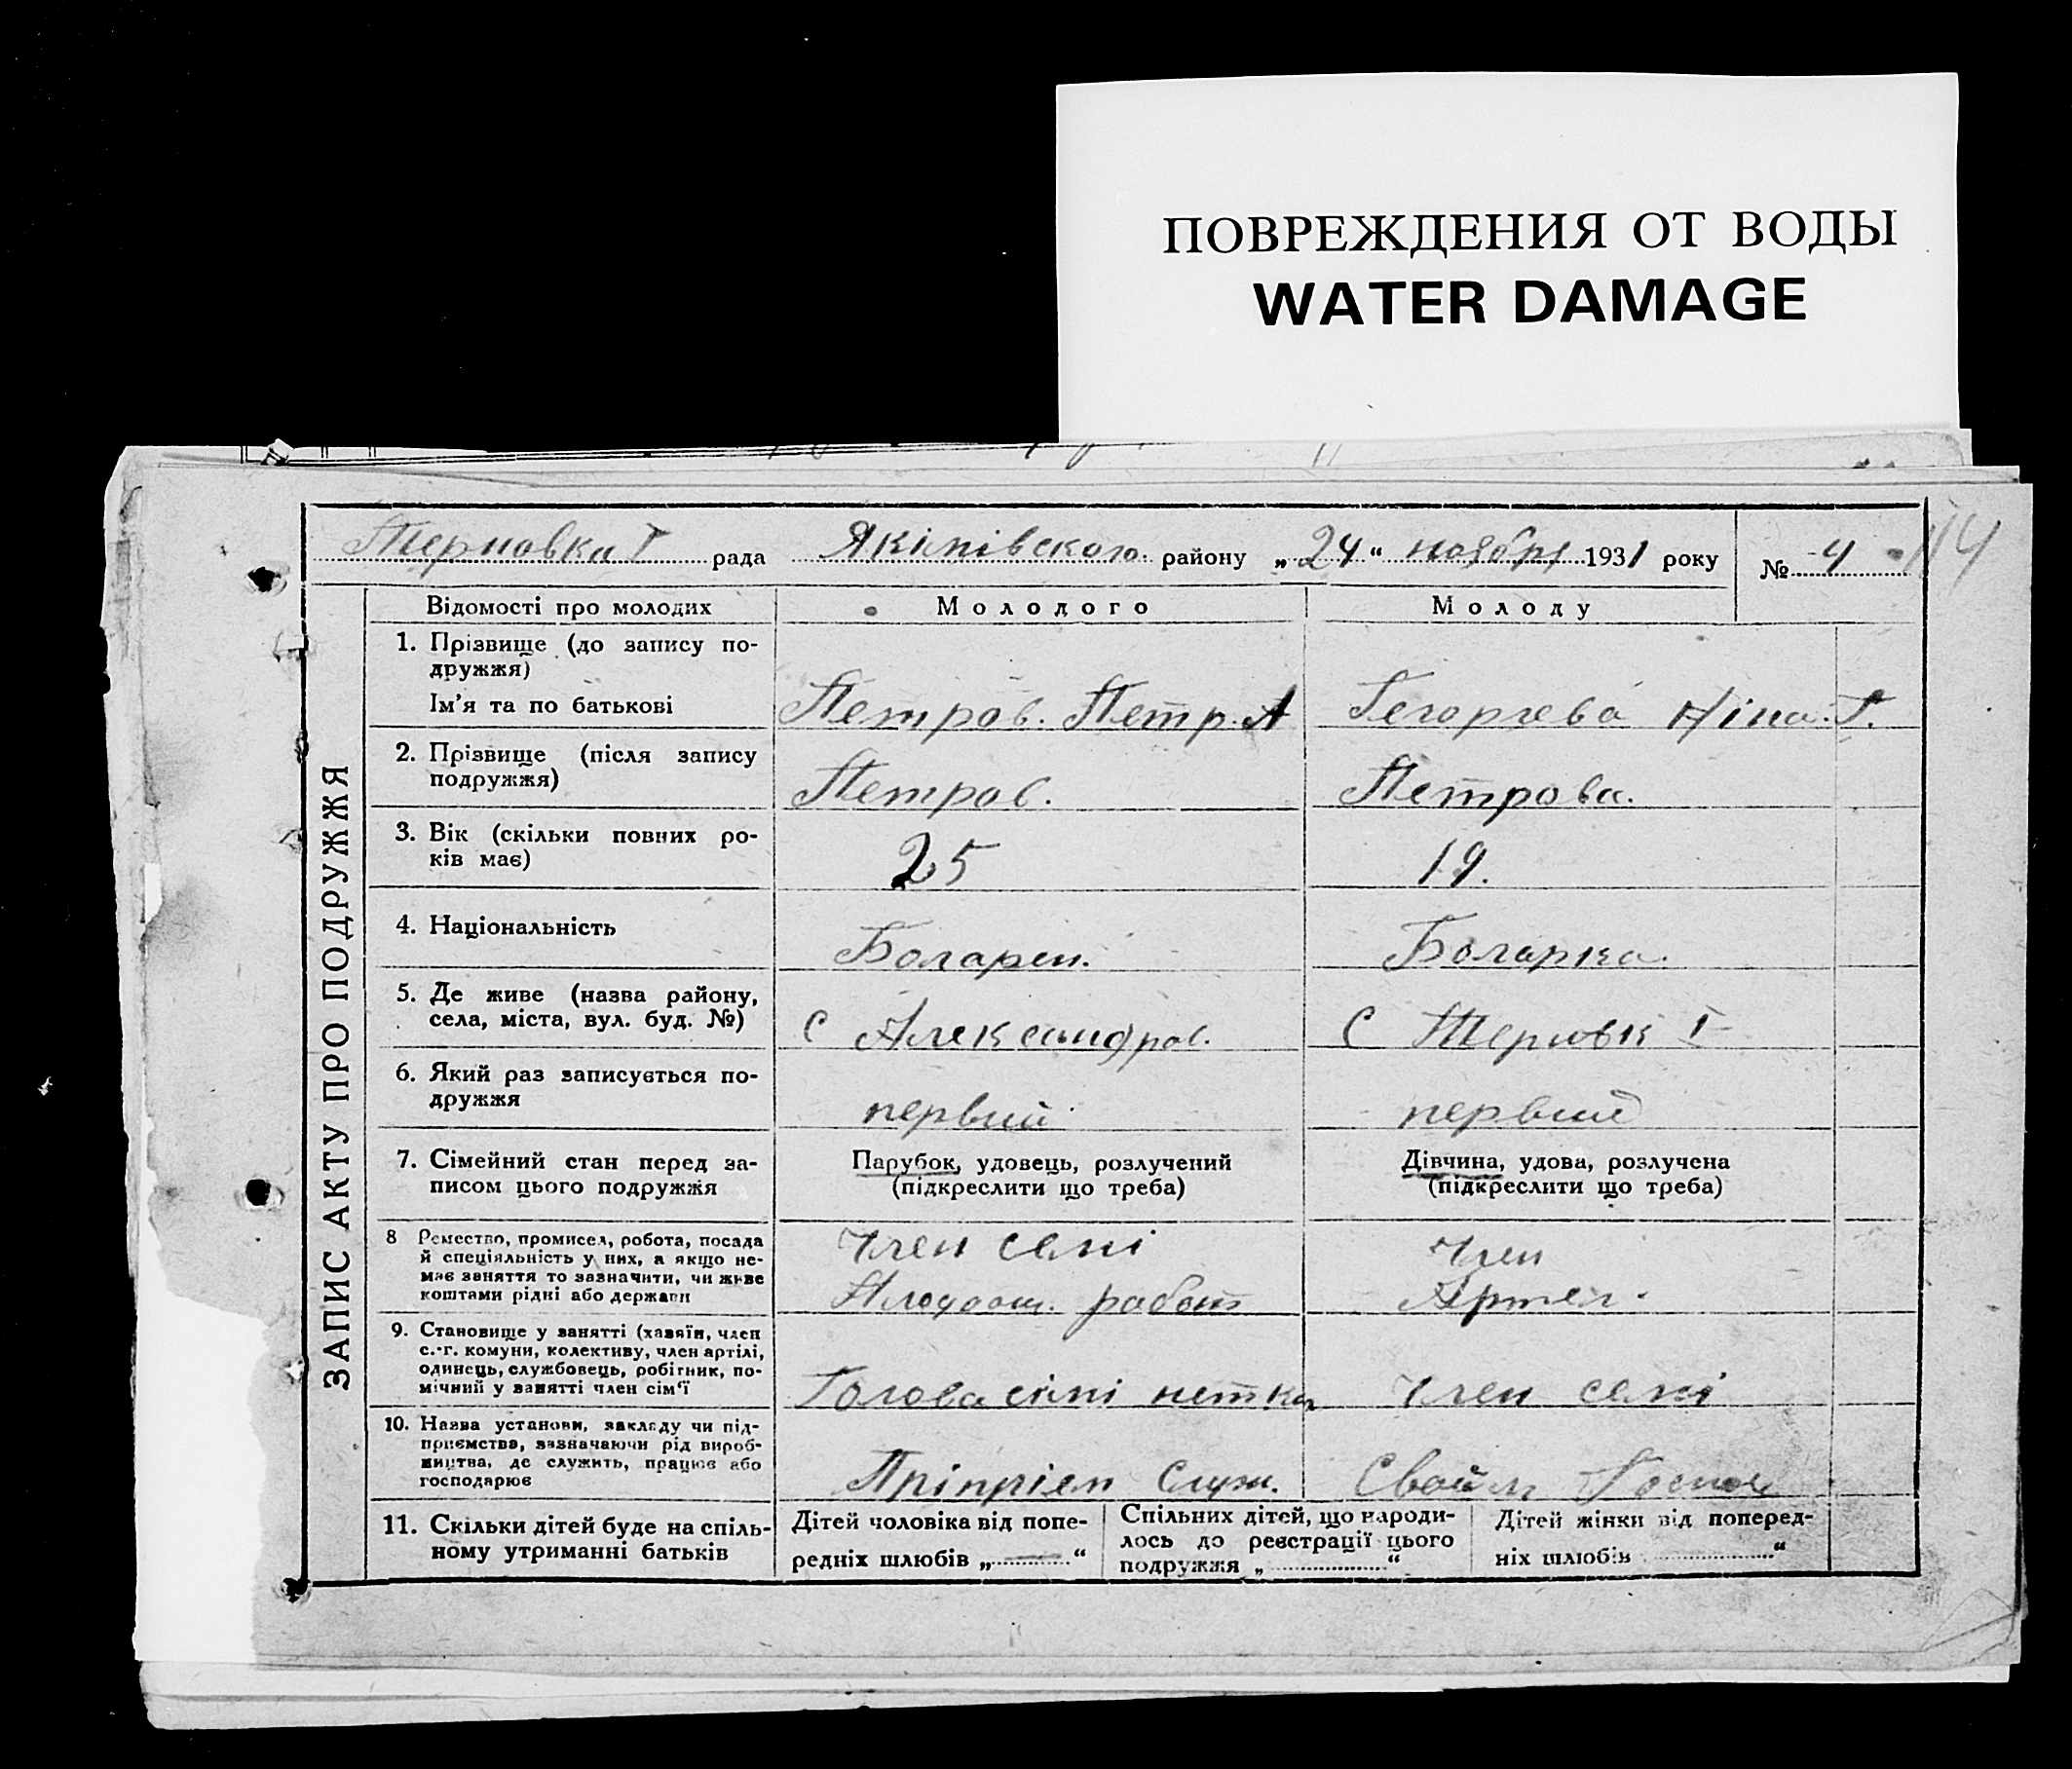 ПОВРЕЖДЕНИЯ ОТ ВОДЫ
WATER DAMAGE
Терновка I рада Якімівского району „24“ ноября 1931 року № 4 114
ЗАПИС АКТУ ПРО ПОДРУЖЖЯ
Відомості про молодих Молодого Молоду
1. Прізвище (до запису по-
дружжя)
Ім'я та по батькові Петров. Петр. А Гегоргева Ніна. Г.
2. Прізвище (після запису
подружжя) Петров. Петрова.
3. Вік (скільки повних ро-
ків має) 25 19.
4. Національність Боларен. Боларка.
5. Де живе (назва району,
села, міста, вул. буд. №) С Александров. С Терновк I
6. Який раз записується по-
дружжя первий первий
7. Сімейний стан перед за-
писом цього подружжя
Парубок, удовець, розлучений
(підкреслити що треба)
Дівчина, удова, розлучена
(підкреслити що треба)
8 Ремество, промисел, робота, посада
й спеціяльність у них, а якщо не-
має заняття то зазначити, чи живе
коштами рідні або держави
Член семі
работ
Член
Артел.
9. Становище у занятті (хазяїн, член
с.-г. комуни, колективу, член артілі,
одинець, службовець, робітник, по-
мічний у занятті член сім'ї
Голова сімі Член семі
10. Назва установи, закладу чи під-
приємства, зазначаючи рід вироб-
ництва, де служить, працює або
господарює
Пріпріем Служ. Своїм
11. Скільки дітей буде на спіль-
ному утриманні батьків
Дітей чоловіка від попе-
редніх шлюбів „ “
Спільних дітей, що народи-
лось до реєстрації цього
подружжя „ “
Дітей жінки від поперед-
ніх шлюбів “